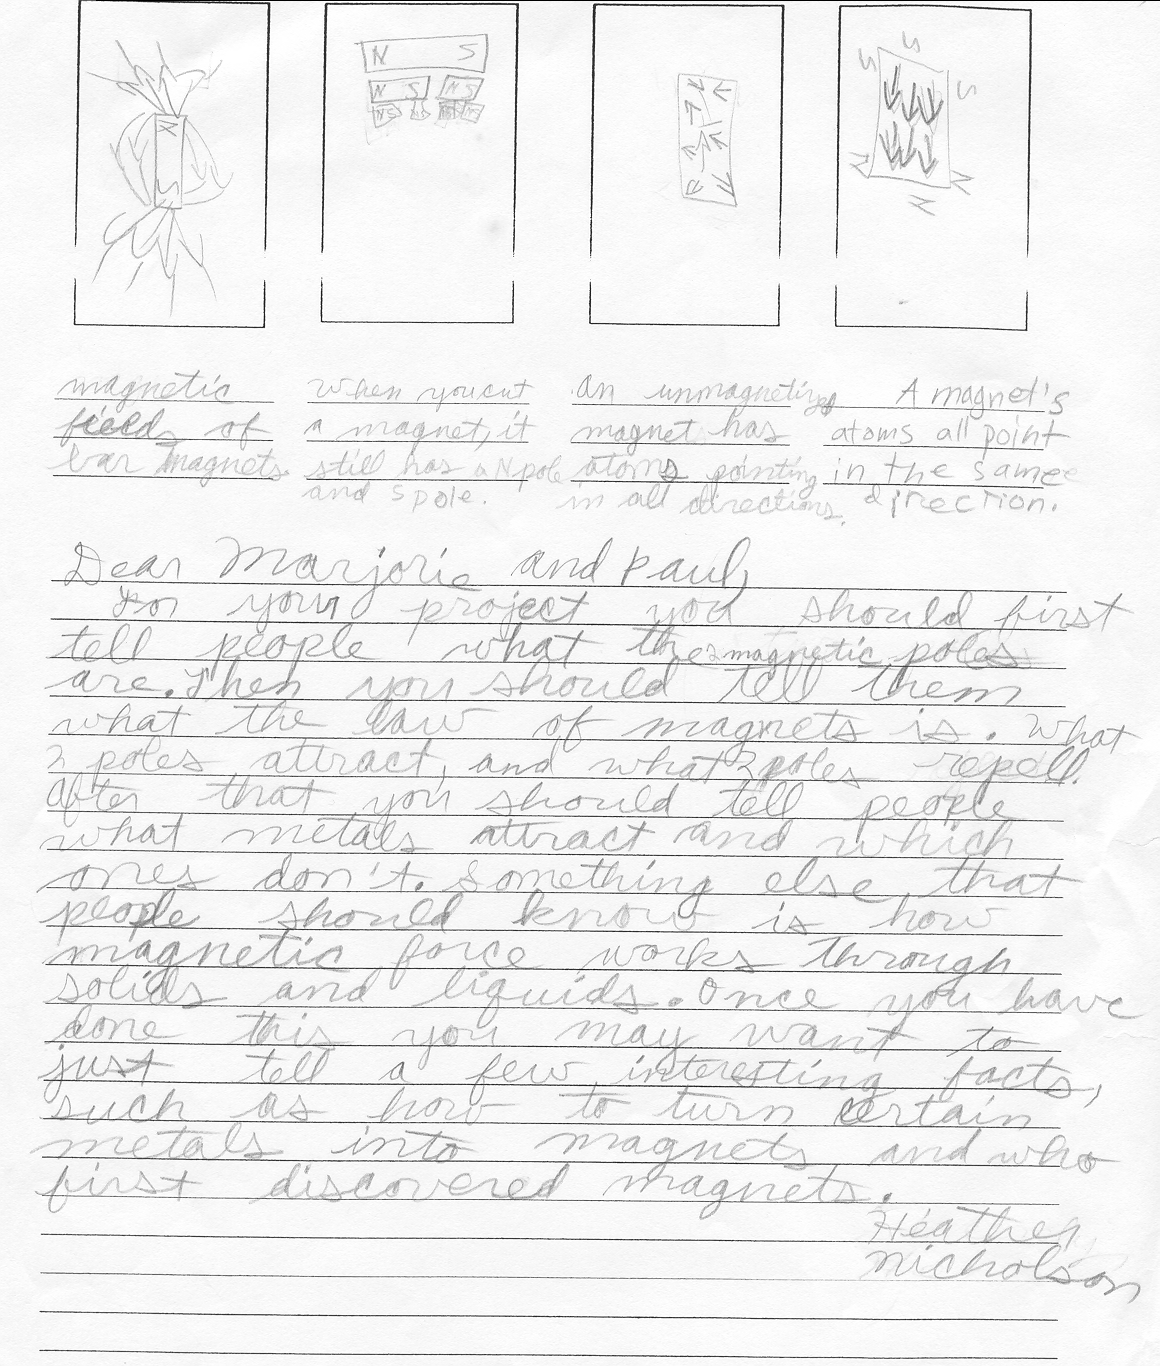 N
S
N S
N S
N S
N S
N
S
S
S
S
N
N
N
magnetic
fields of
bar magnets.
When you cut
a magnet, it
still has a N pole
and S pole.
An unmagnetized
magnet has
atoms pointing
in all directions.
A magnet's
atoms all point
in the same
direction.
Dear Marjorie and Paul,
For your project you should first
tell people what the 2 magnetic poles
are. Then you should tell them
what the law of magnets is. What
2 poles attract, and what 2 poles repell.
After that you should tell people
what metals attract and which
ones don't. Something else that
people should know is how
magnetic force works through
solids and liquids. Once you have
done this you may want to
just tell a few interesting facts,
such as how to turn certain
metals into magnets, and who
first discovered magnets.
Heather
Nicholson